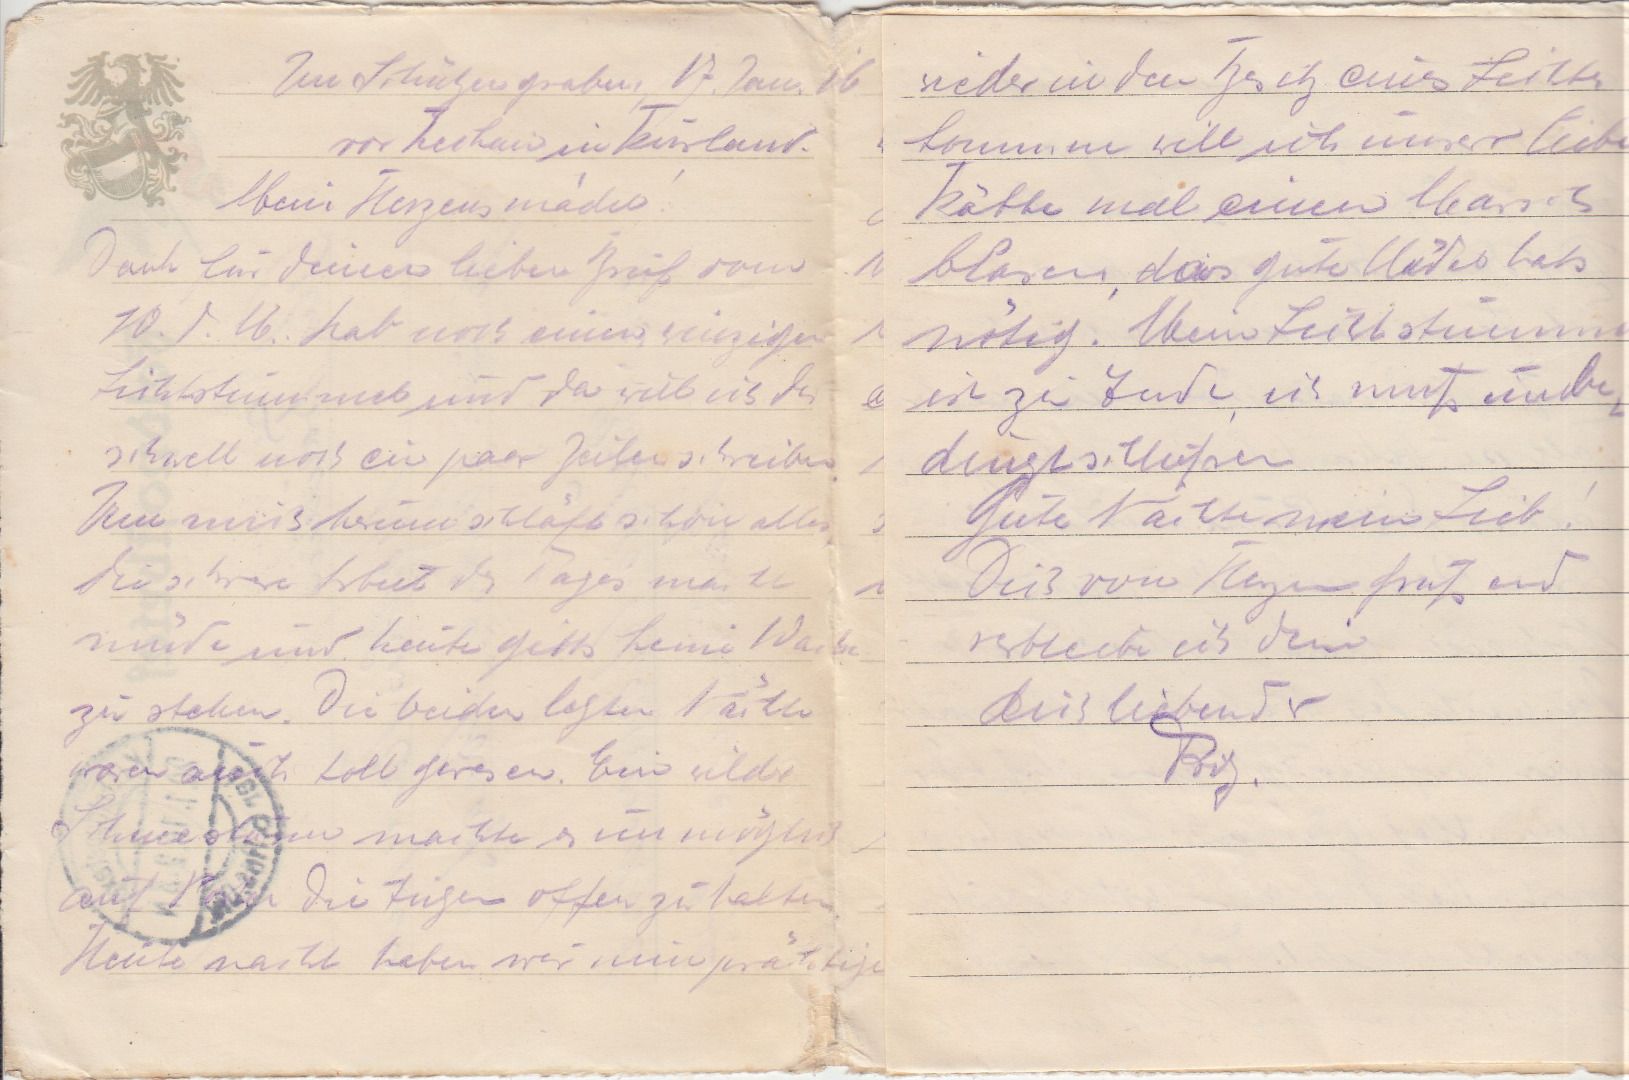 Im Schützengraben, 17. Jan. 16
vor in Kurland.
Mein Herzensmädel!
Dank für deinen lieben Gruß vom
10. d. M. hab noch einen winzigen
Lichtstummel und da will ich dir
schnell noch ein paar Zeilen schreiben.
Um mich herum schläft schon alles,
die schwere Arbeit des Tages macht
müde und heute gibts keine Wache
zu stehen. Die beiden letzten Nächte
waren auch toll gewesen. Ein wilder
Schneesturm machte es unmöglich
auf die Augen offen zu halten.
Heute nacht haben wir nun prächtige
wieder in den Besitz eines Lichtes
komme will ich unsere liebe
Käthe mal einen Marsch
blasen, das gute Mädel hats
nötig. Mein Lichtstummel
ist zu Ende, ich muß unbe-
dingt schließen
Gute Nacht mein Lieb!
Dich von Herzen grüßend
verbleibe ich dein
dich liebender
Fritz.